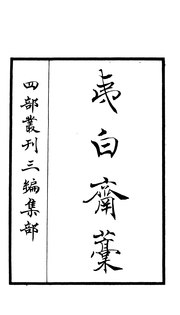 夷白齋藁
四部叢刊三編集部